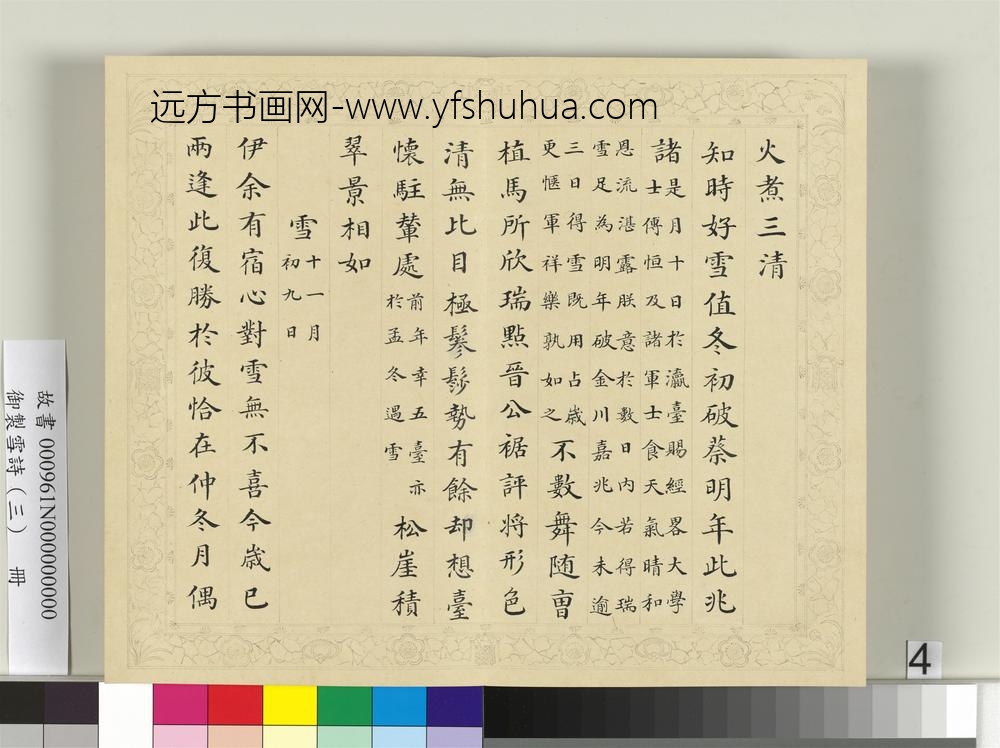 远方书画网-www.yfshuhua.com
火煮三清
知時好雪值冬初破蔡明年此兆
諸
是月十日於瀛臺賜經畧大學
士傅恒及諸軍士食天氣晴和
恩流湛露朕意於數日内若得瑞
雪足為明年破金川嘉兆今未逾
三日得雪既用占歳
更愜軍祥樂孰如之
不數舞随曺
植馬所欣瑞點晉公裾評將形色
清無比目極鬖髿勢有餘却想臺
懷駐輦處
前年幸五臺亦
於孟冬遇雪
松崖積
翠景相如
雪
十一月
初九日
伊余有宿心對雪無不喜今歳已
兩逢此復勝於彼恰在仲冬月偶
故書 000961N000000000
御製雪詩（三） 冊
4